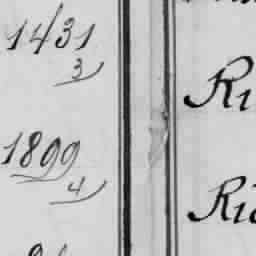 1431
3
Ri
1899
4
Ri